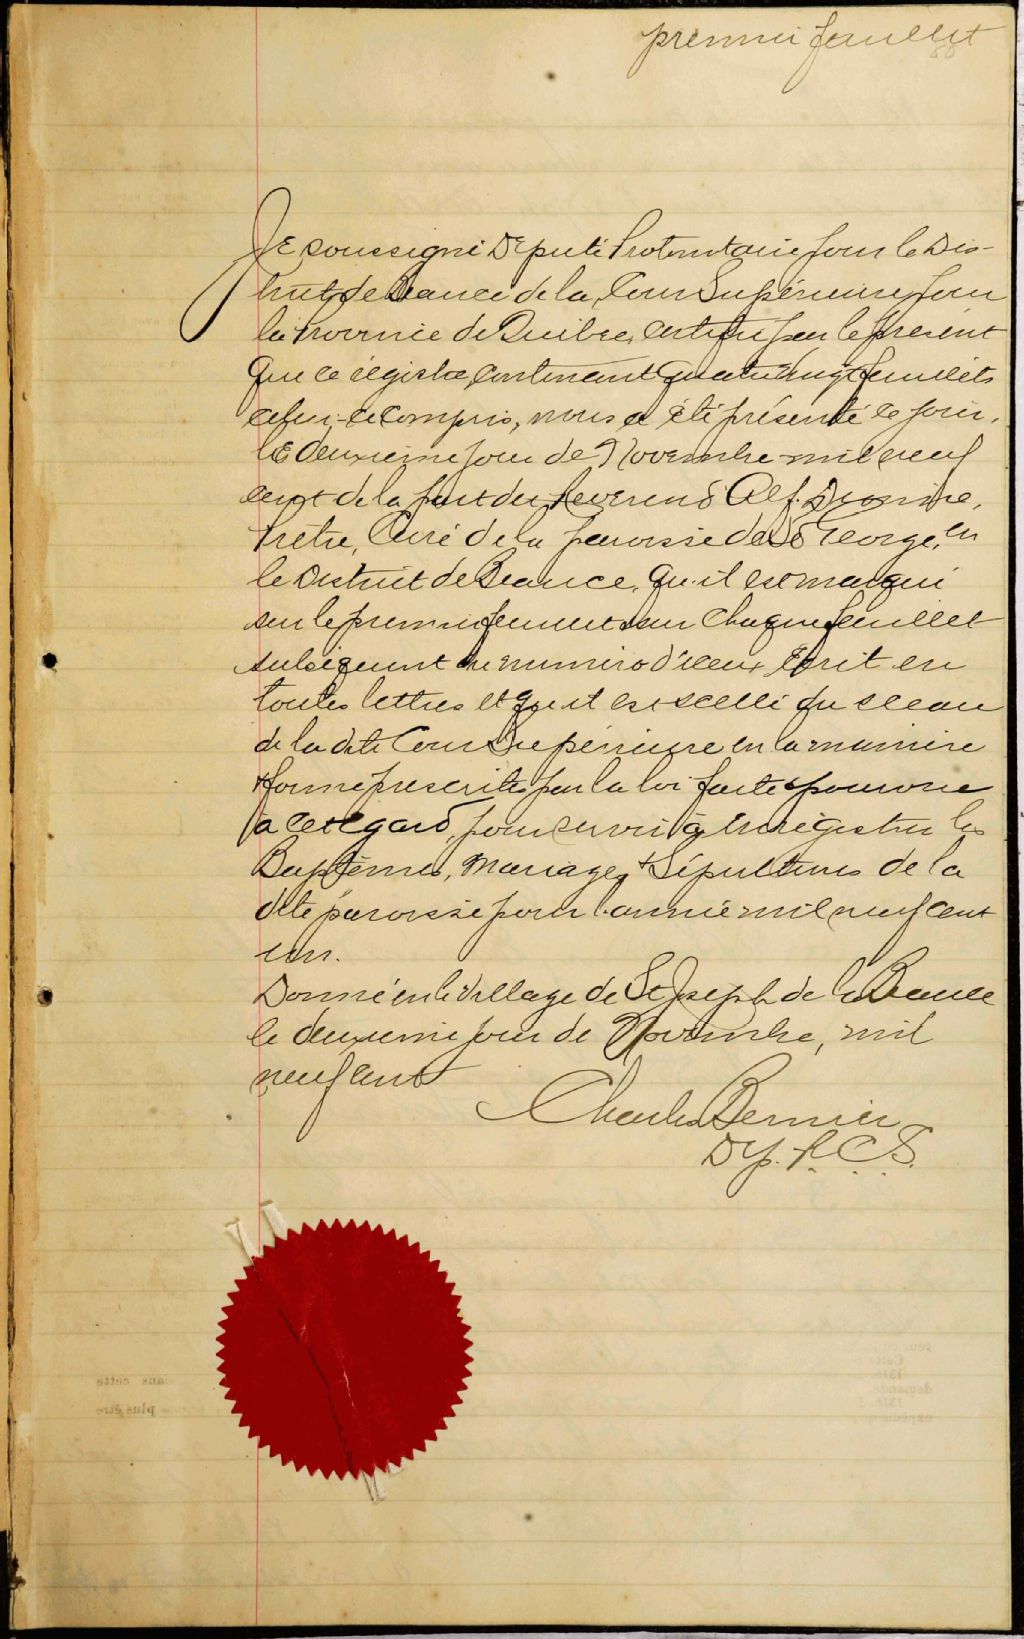 premier feuillet
Je soussigné Député Protonotaire pour le Dis-
trict de Beauce de la Cour Supérieure pour
la Province de Québec, certifie par le présent
que ce régistre, contenant quatre vingt feuillets
celui-ci compris, nous a été présenté ce jour,
le deuxième jour de Novembre mil neuf
cent de la part du Révérend Alf. Dionne,
Prêtre, Curé de la paroisse de St George, en
le District de Beauce, qu'il est marqué
sur le premier feuillet & sur chaque feuillet
subséquent du numéro d'iceux écrit en
toutes lettres et qu'il est scellé du sceau
de la dite Cour Supérieure en la manière
& forme prescrites par la loi faite & pourvue
à cet égard, pour servir à enrégistrer les
Baptêmes, Mariages & Sépultures de la
dite paroisse pour l'année mil neuf cent
un.
Donné en le Village de St Joseph de la Beauce
le deuxième jour de Novembre, mil
neuf cent
Charles Bernier
Dp. P. C. S.
dans cette
plus être